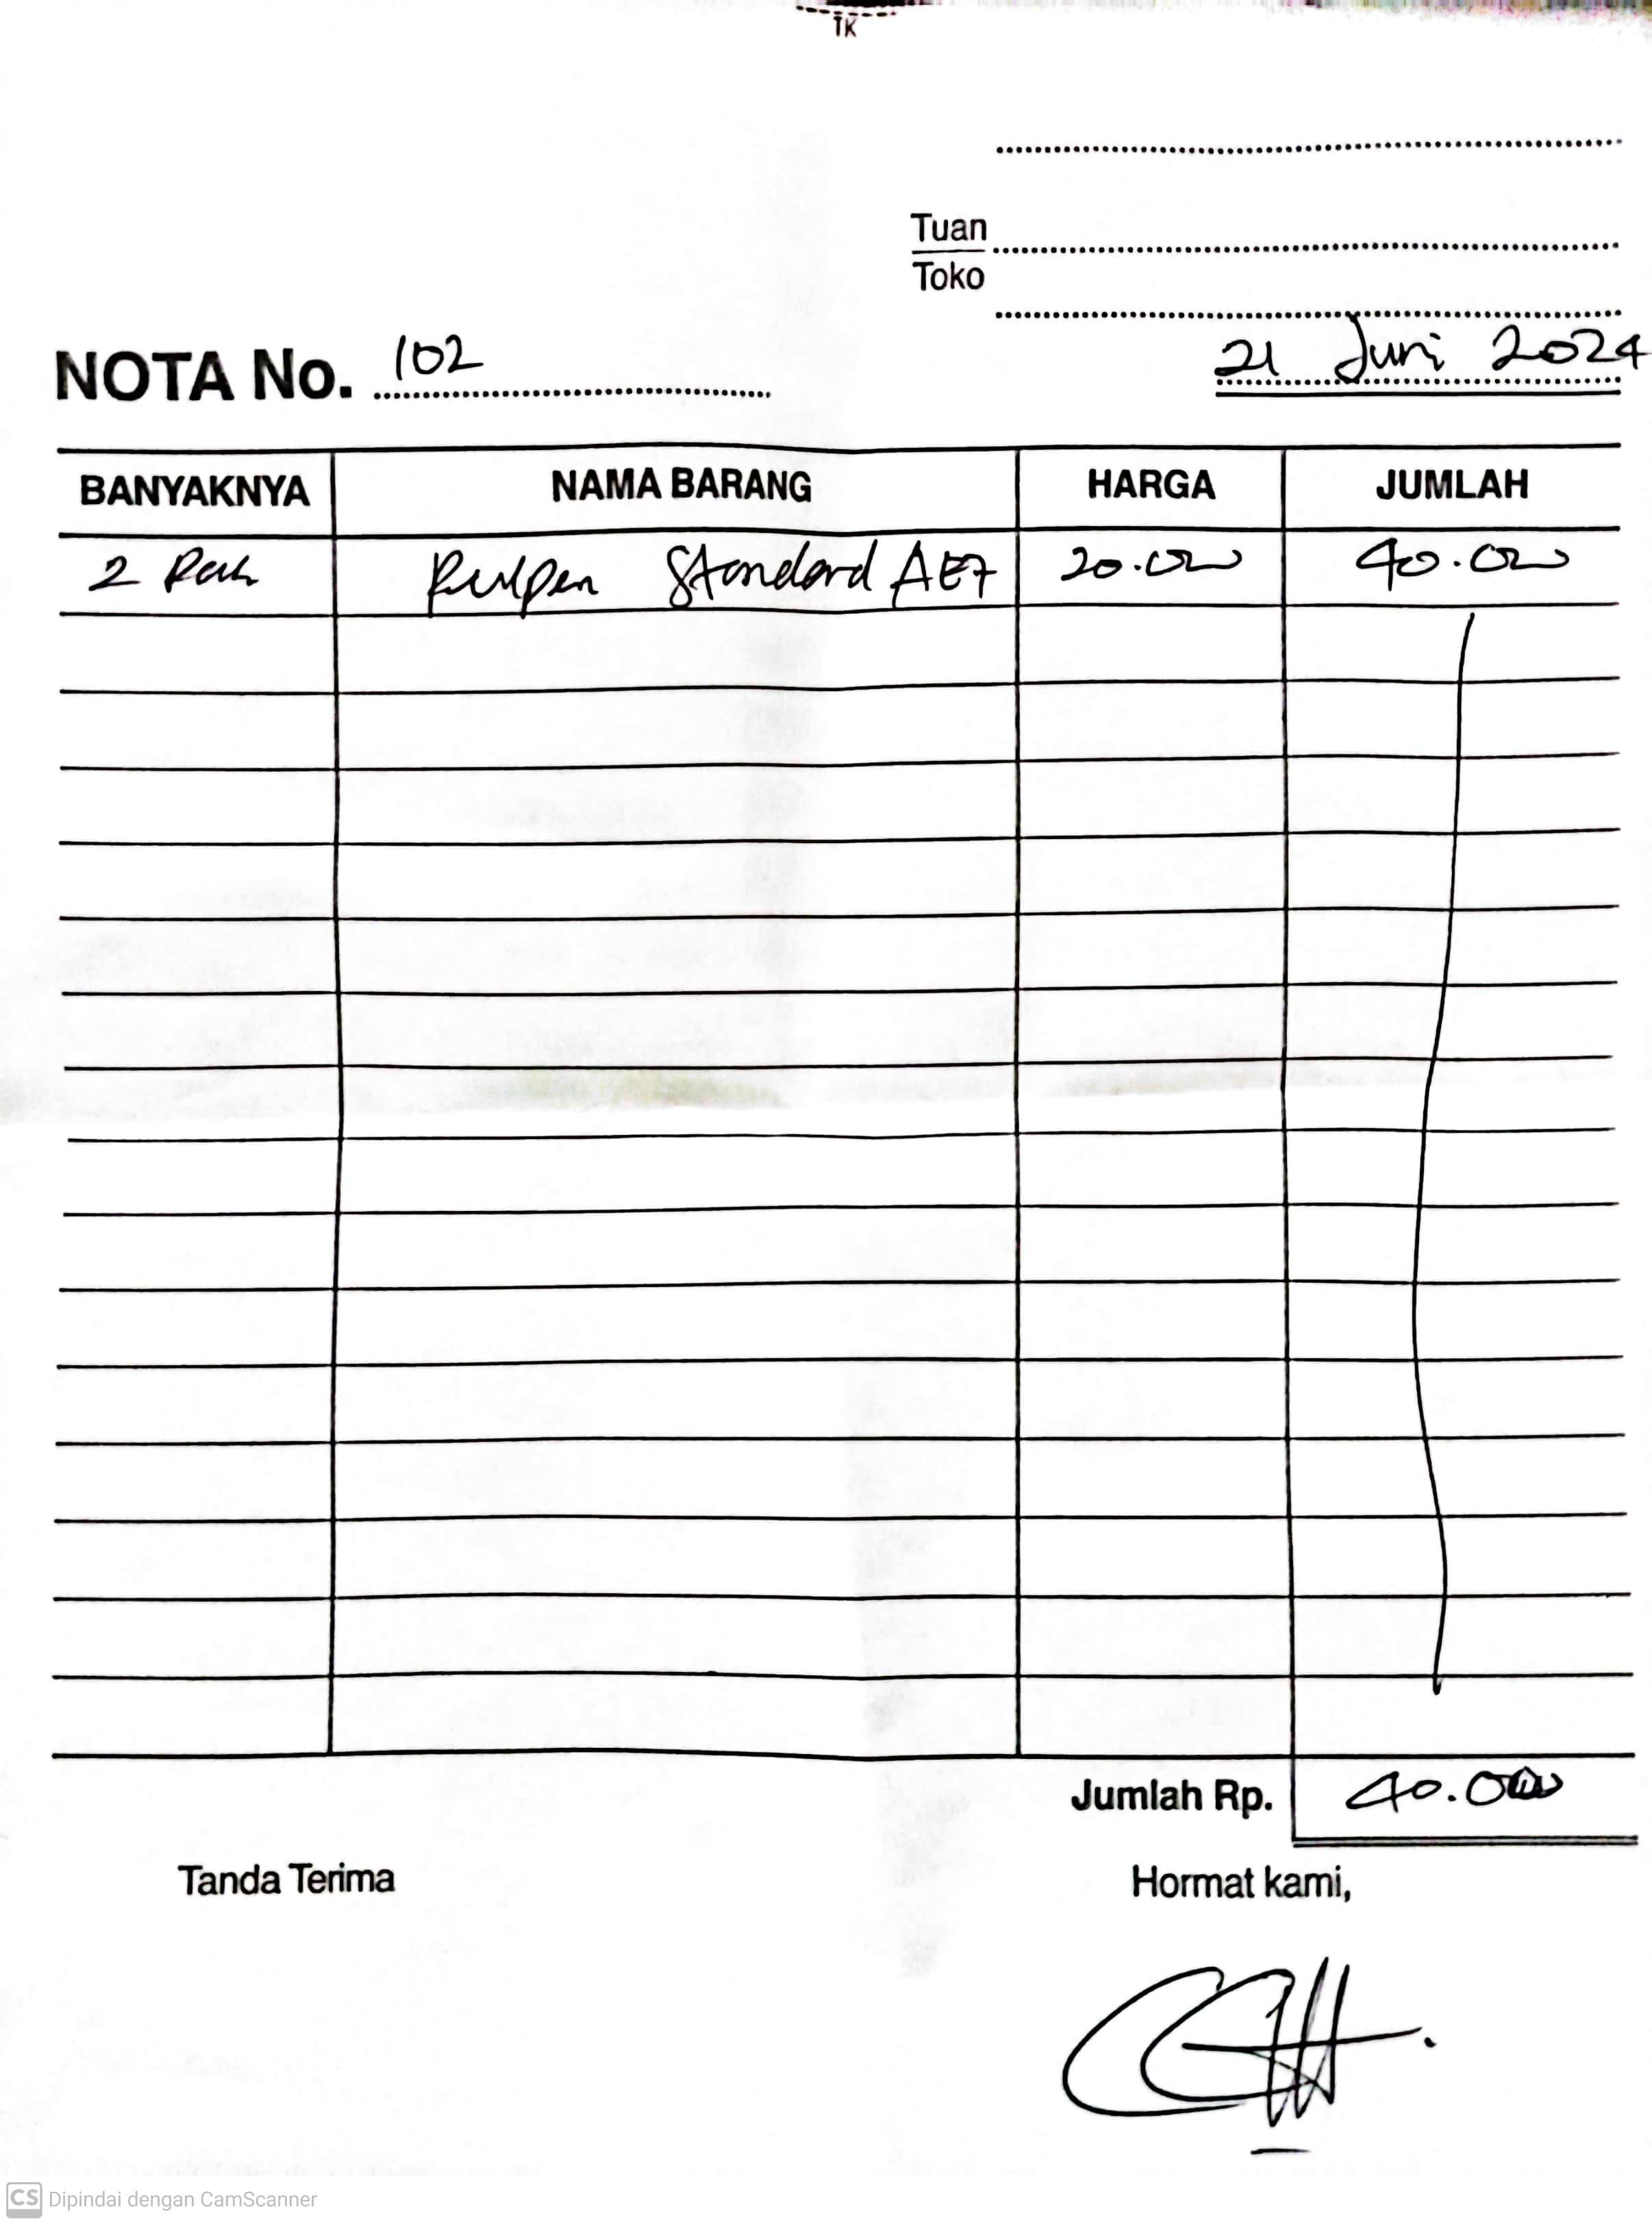 TK
Tuan
Toko
NOTA No. 102
21 Juni 2024
BANYAKNYA NAMA BARANG HARGA JUMLAH
2 Pak Pulpen Standard AE7 20.000 40.000
Jumlah Rp. 40.000
Tanda Terima Hormat kami,
CS Dipindai dengan CamScanner